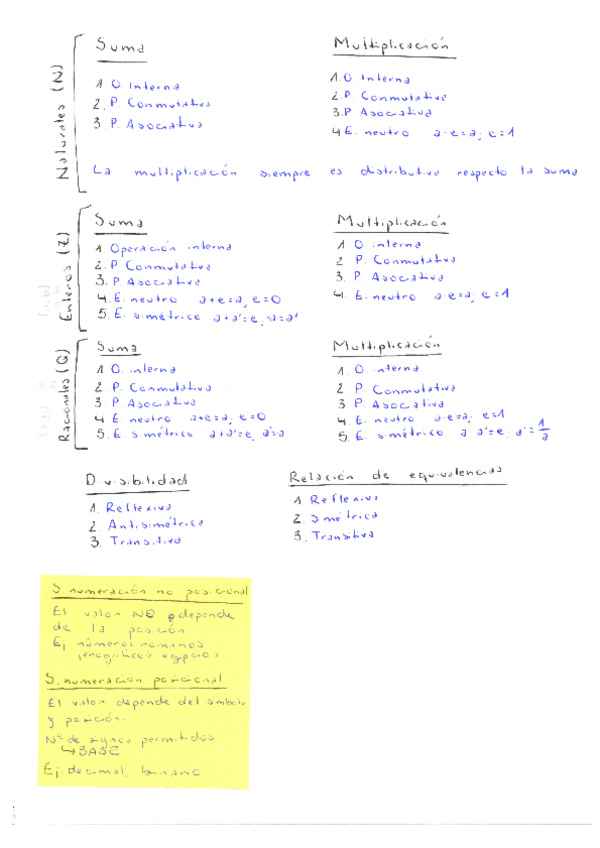 Naturales (N)
Suma
1 O. Interna
2. P. Conmutativa
3. P. Asociativa
Multiplicación
1. O Interna
2. P. Conmutativa
3. P Asociativa
4 E. neutro a·e=a; e=1
La multiplicación siempre es distributiva respecto la suma
Enteros (Z)
Suma
1. Operación interna
2. P. Conmutativa
3. P Asociativa
4. E. neutro a+e=a; e=0
5. E. simétrico a+a'=e
Multiplicación
1 O. interna
2 P. Conmutativa
3. P. Asociativa
4. E. neutro a·e=a; e=1
Racionales (Q)
Suma
1 O. interna
2. P. Conmutativa
3. P. Asociativa
4 E neutro a+e=a; e=0
5. E. simétrico a+a'=e;
Multiplicación
1. O. interna
2 P. Conmutativa
3 P. Asociativa
4. E. neutro a·e=a; e=1
5. E. simétrico a·a'=e; a'=1/a
Divisibilidad
1. Reflexiva
2. Antisimétrica
3. Transitiva
Relación de equivalencias
1 Reflexiva
2. Simétrica
3. Transitiva
S. numeración no posicional
El valor NO depende
de la posición
Ej números romanos
jeroglíficos egipcios
S. numeración posicional
El valor depende del símbolo
y posición.
Nº de signos permitidos
↳ BASE
Ej. decimal, binario